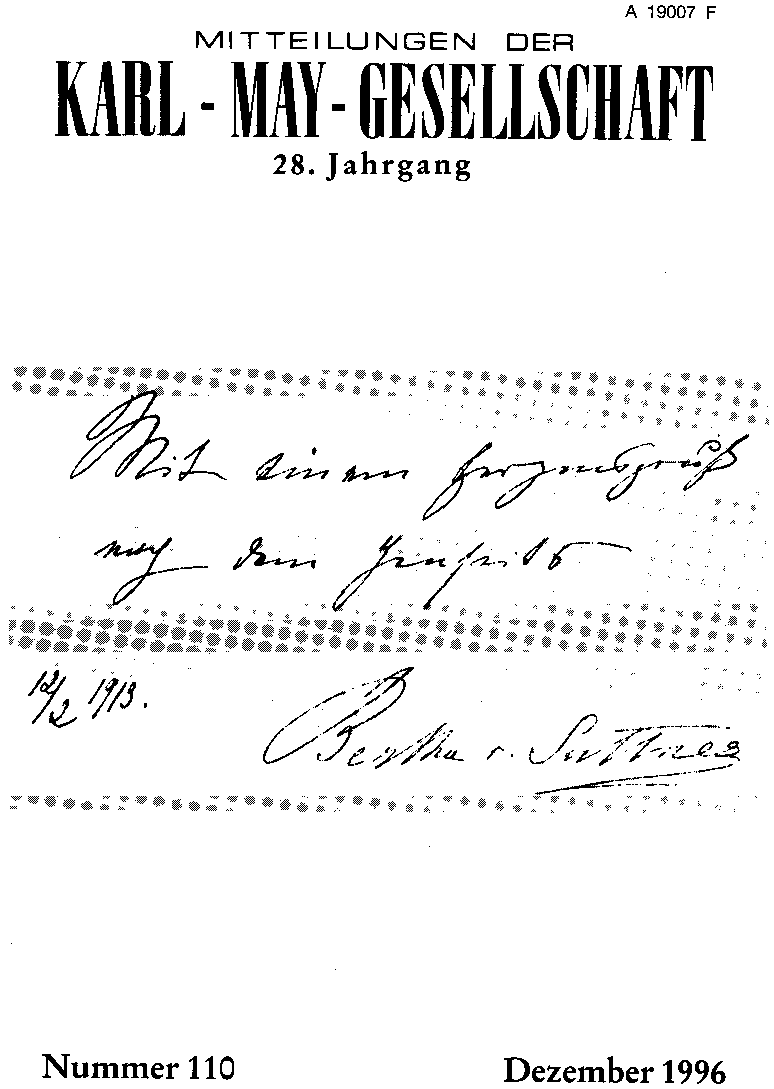 A 19007 F
MITTEILUNGEN DER
KARL - MAY - GESELLSCHAFT
28. Jahrgang
Mit einem Herzensgruß
nach dem Jenseits
12/2 1913.
Bertha v. Suttner
Nummer 110
Dezember 1996